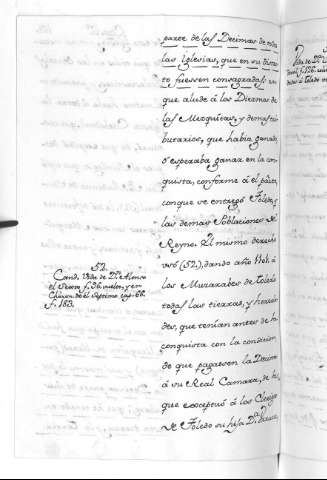 parte de las Decimas de todas
las Iglesias, que en su distri-
to fuessen consagradas: en
que alude á los Diezmos de
las Mezquitas, y demas tri-
butarios, que habia ganado,
ó esperaba ganar en la con-
quista, conforme á el pacto,
con que se entregó Toledo, y
las demas Poblaciones de
Reyno. El mismo
(52.), dando año
los Muzarabes de Toledo
todas las tierras, y hereda-
des, que tenían antes de la
conquista con la condicion
de que pagassen la Decima
á su Real Camara, de la
que exceptuó á los Clerigos
de Toledo su hija D.ª Urraca,
52.
Cand. Vida de D.n Alonso
el f. 96. vuelta, y en
Chron. de el Septimo cap. 66.
f. 183.